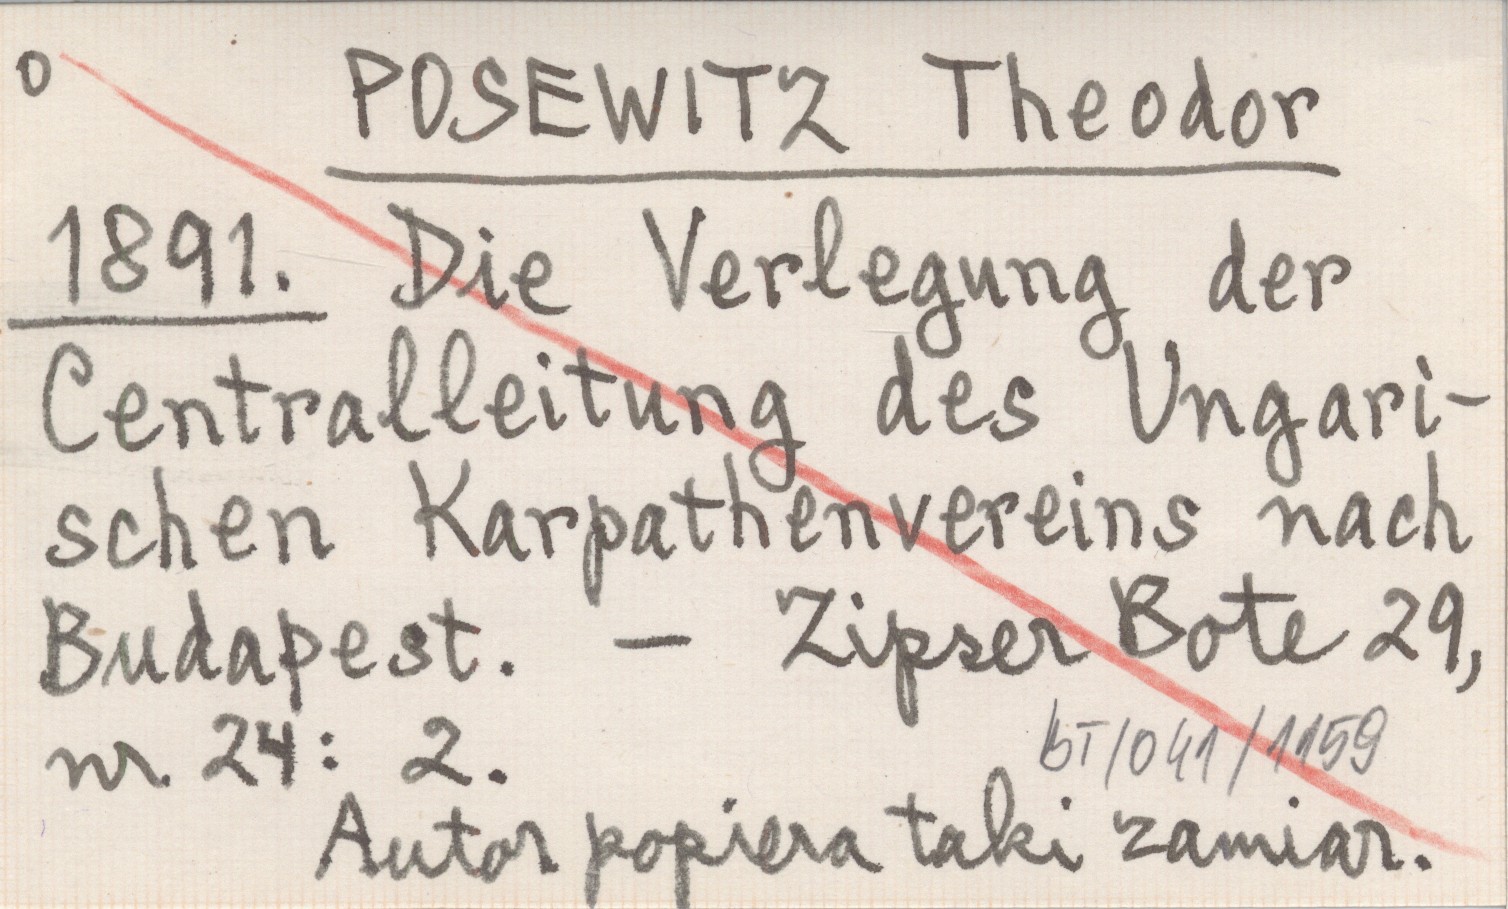 o POSEWITZ Theodor
1891. Die Verlegung der
Centralleitung des Ungari-
schen Karpathenvereins nach
Budapest. – Zipser Bote 29,
nr. 24: 2.
bT/041/1159
Autor popiera taki zamiar.